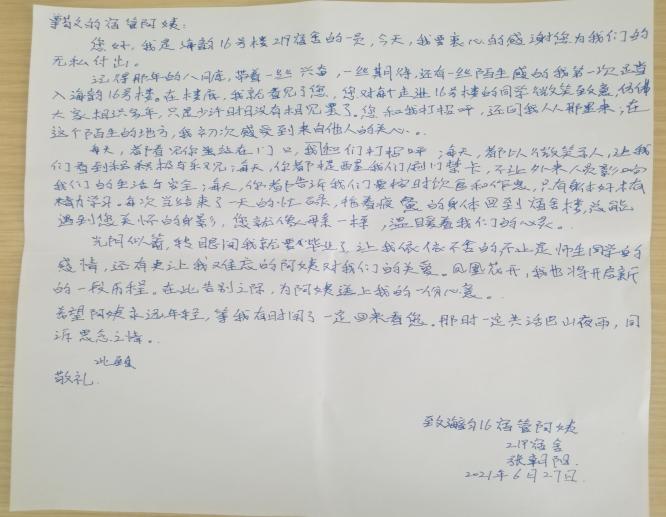 尊敬的宿管阿姨:
您好,我是海韵16号楼219宿舍的一员,今天,我要衷心的感谢您为我们的
无私付出。
记得那年的八月底,带着一丝兴奋,一丝期待,还有一丝陌生感的我第一次迈
入海韵16号楼。在楼底,我就看见了您,您对每个走进16号楼的同学微笑致意,仿佛
大家相识多年,只是少许时日没有相见罢了。您和我打招呼,还问我从哪里来;在
这个陌生的地方,我初次感受到来自他人的关心。
每天,都看见你坐站在门口,我和你们打招呼;每天,都以微笑示人,让我
们看到积极与乐观;每天,你都提醒我们刷门禁卡,不让外来人员影响
我们的生活与安全;每天,你都告诉我们要按时饮食和作息,只有身体好才有
精力学习。每次当结束了一天的忙碌,拖着疲惫的身体回到宿舍楼,总能
遇到您关怀的身影,您就像母亲一样,温暖着我们的心灵。
光阴似箭,转眼间我就要毕业了,让我依依不舍的不止是师生同学的
感情,还有更让我难忘的阿姨对我们的关爱。凤凰花开,我也将开启新
的一段历程。在此告别之际,为阿姨送上我的一份心意。
希望阿姨永远年轻,等我有时间了一定回来看您。那时一定共话巴山夜雨,同
诉思念之情。
此致
敬礼
致海韵16宿管阿姨
219宿舍
张朝阳
2021年6月27日